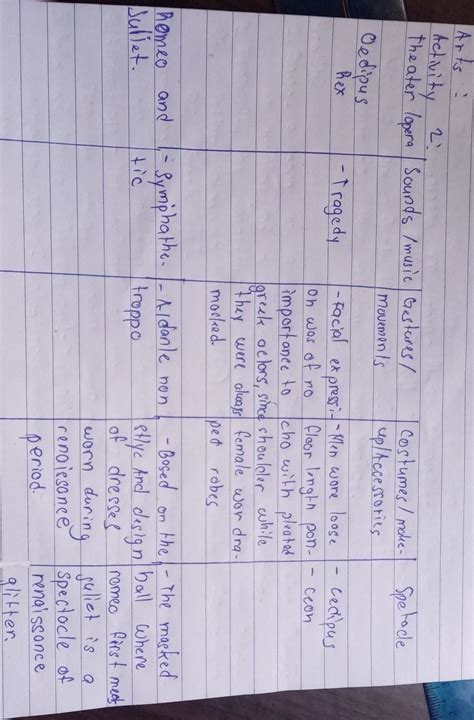 Arts :
Activity 2:
theater/opera
Sounds/music
Gestures/
movements
Costumes/make-
up/Accessories
Spetacle
Oedipus
Rex
- Tragedy
- Facial expressi-
on was of no
importance to
greek actors, since
they were always
masked.
- Men wore loose
floor length pon-
cho with pleated
shoulder while
female wor dra-
ped robes
- oedipus
- ceon
Romeo and
Juliet.
- Symphathe-
tic
- Aldante non
troppo
- Based on the
style And design
of dresses
worn during
renaissance
period.
- The masked
ball where
romeo first meet
juliet is a
spectacle of
renaissance
glitter.